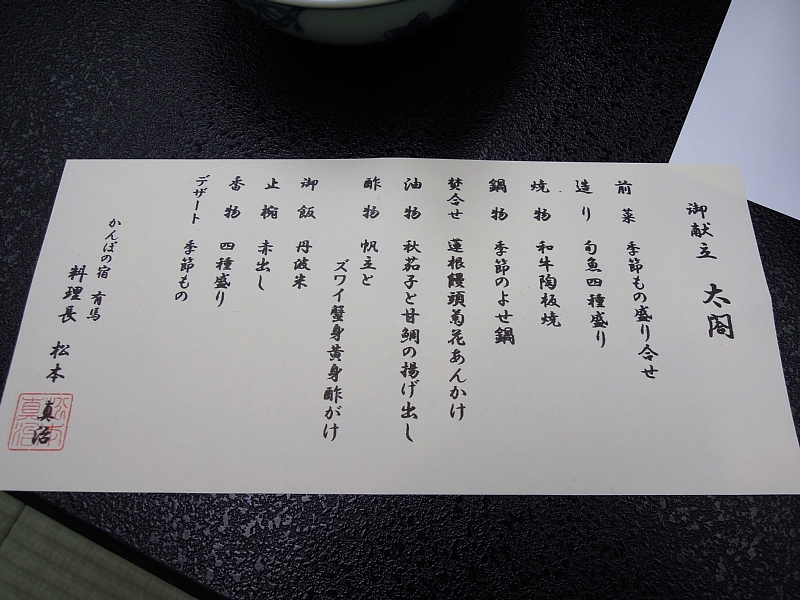 御献立 太閤
前菜 季節もの盛り合せ
造り 旬魚四種盛り
焼物 和牛陶板焼
鍋物 季節のよせ鍋
焚合せ 蓮根饅頭菊花あんかけ
油物 秋茄子と甘鯛の揚げ出し
酢物 帆立と
ズワイ蟹身黄身酢がけ
御飯 丹波米
止椀 赤出し
香物 四種盛り
デザート 季節もの
かんぽの宿 有馬
料理長 松本 真治
松本
真治